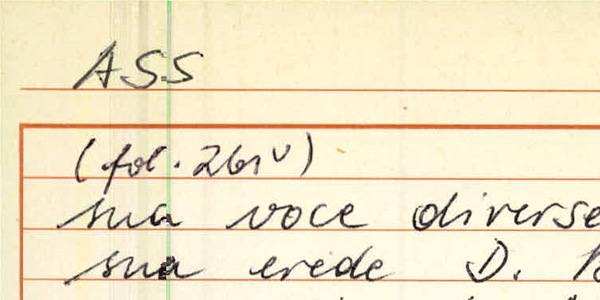 ASS
(fol. 261v)
sua voce diverse
sua erede D.